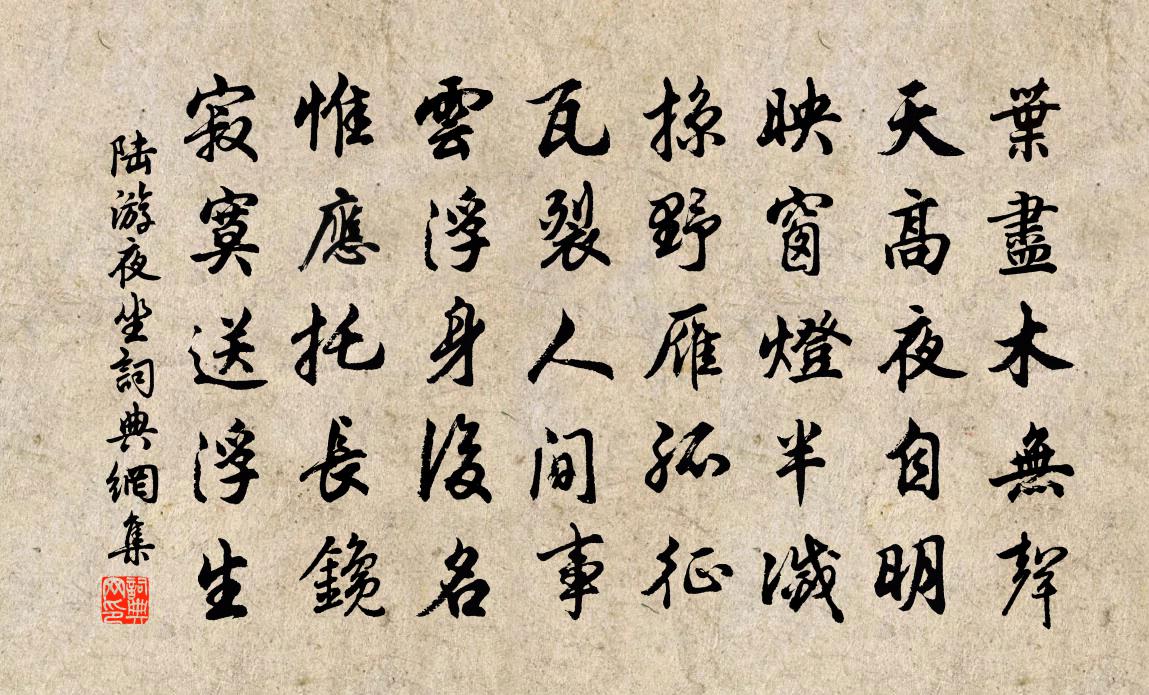 葉盡木無聲
天高夜自明
映窗燈半滅
掠野雁孤征
瓦裂人間事
雲浮身後名
惟應托長鑱
寂寞送浮生
陆游夜坐詞典網集
詞典网印